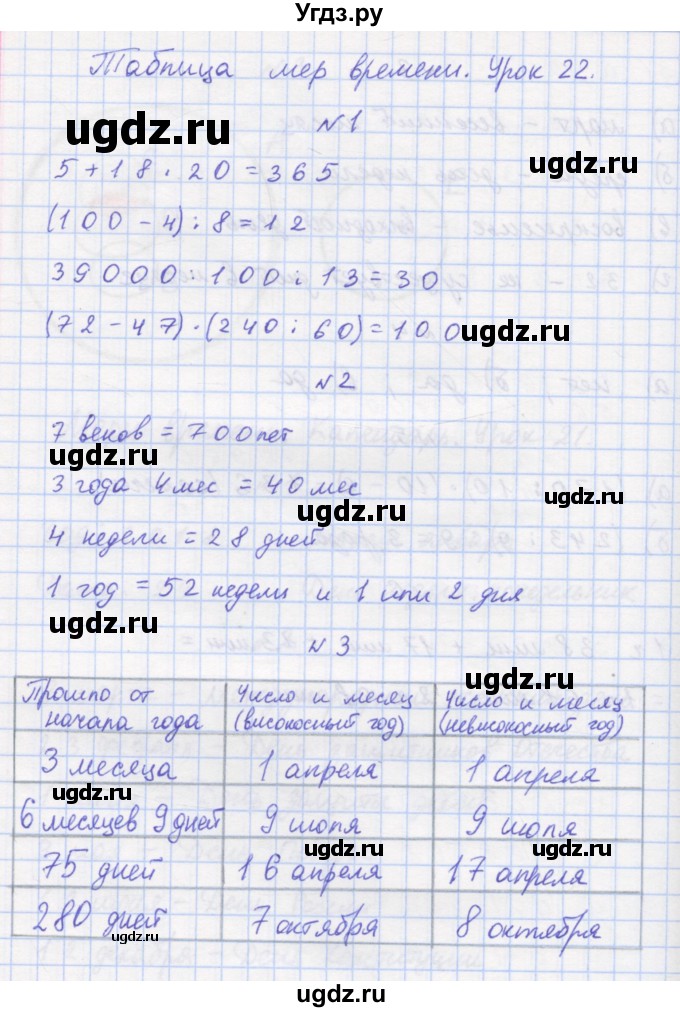 Угдз.ру
Таблица мер времени. Урок 22.
ugdz.ru
№1
ugdz.ru
5 + 18 · 20 = 365
(100 - 4) : 8 = 12
39000 : 100 : 13 = 30
(72 - 47) · (240 : 60) = 100
ugdz.ru
№2
7 веков = 700 лет
ugdz.ru
3 года 4 мес = 40 мес
ugdz.ru
ugdz.ru
4 недели = 28 дней
1 год = 52 недели и 1 или 2 дня
ugdz.ru
№3
ugdz.ru
Прошло от начала года | Число и месяц (високосный год) | Число и месяц (невисокосный год)
3 месяца | 1 апреля | 1 апреля
ugdz.ru
6 месяцев 9 дней | 9 июля | 9 июля
ugdz.ru ugdz.ru
75 дней | 16 апреля | 17 апреля
280 дней | 7 октября | 8 октября
ugdz.ru ugdz.ru ugdz.ru
ugdz.ru